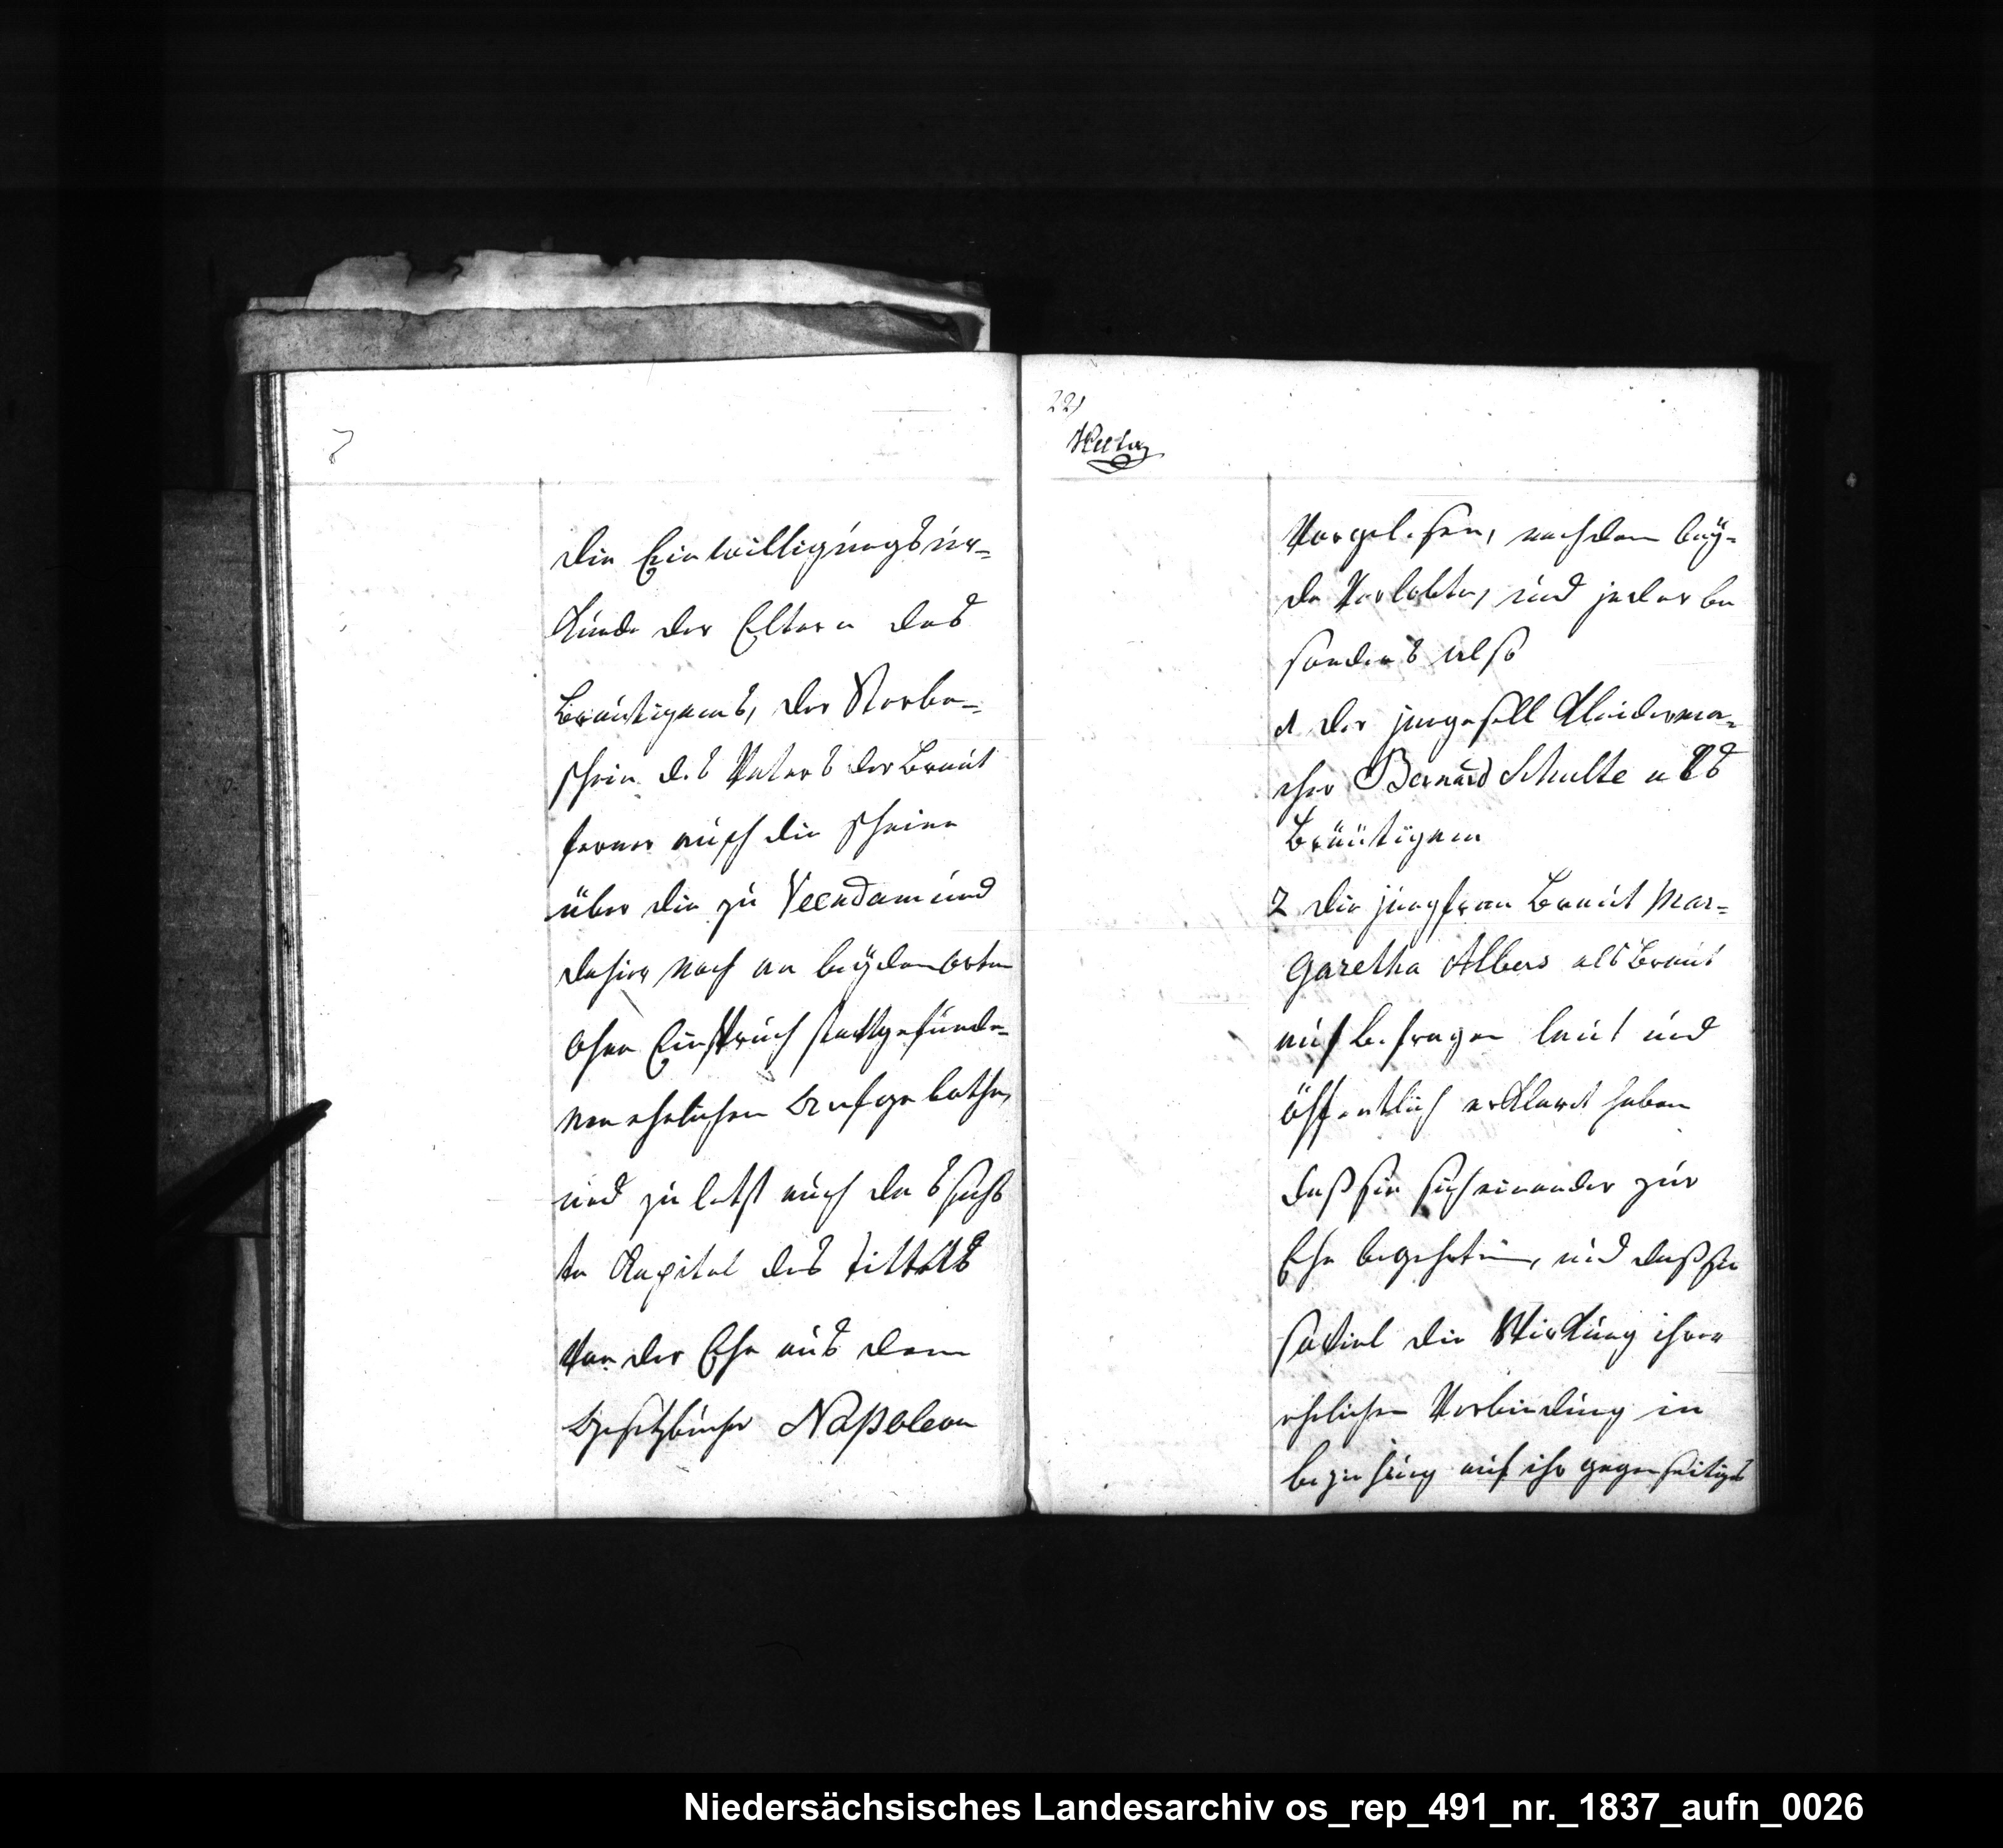 die Einwilligungsur=
kunde der Eltern des
Bräutigams, der Sterbe=
schein des Vaters der Braut
ferner auch die scheine
über die zu Veendam und
dahier nach an beyden orten
ohne Einspruch stattgefunde=
nen ehelichen Aufgebothe,
und zu letzt auch das sechs
te Kapitel des tittels
Von der Ehe aus dem
Gesetzbuche Napoleon
221
Vorgelesen, nachdem bey=
de Verlobte, und jeder be
sonders also
1 der jungesell Kleiderma=
cher Bernard Schulte als
Bräutigam
2 die jungfrau Braut Mar=
garetha Albers als Braut
auf befragen laut und
öffentlich erklärt haben
daß sie sich einander zur
Ehe begehrten, und daß sie
soviel die Wirkung ihrer
ehelichen Verbindung in
beziehung auf ihr gegenseitiges
Niedersächsisches Landesarchiv os_rep_491_nr._1837_aufn_0026